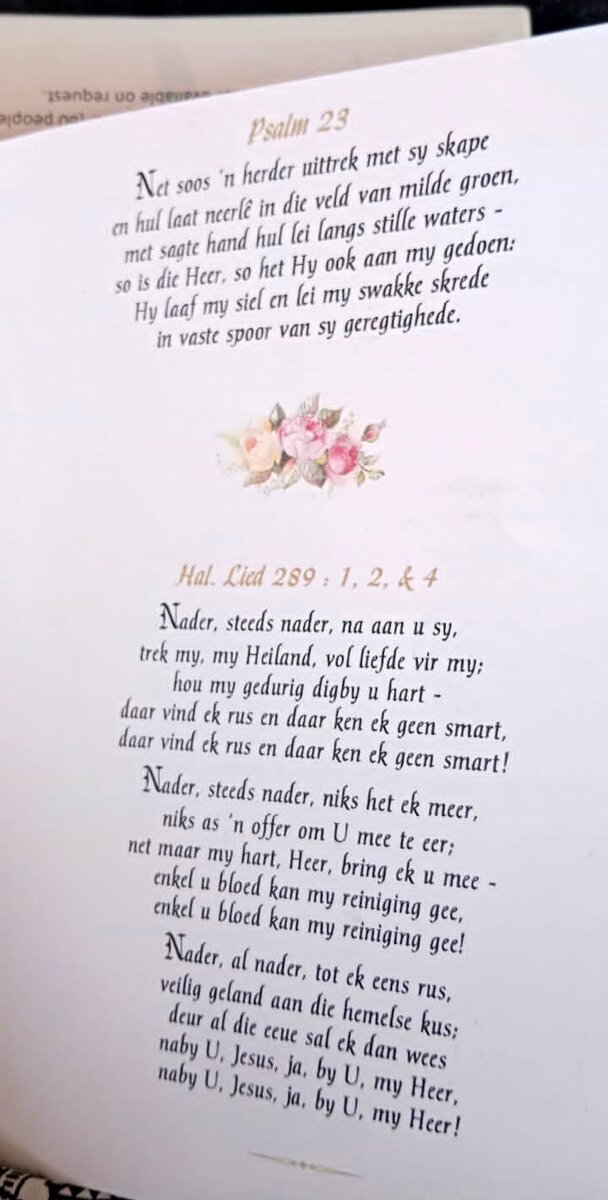 available on request.
Psalm 23
Net soos 'n herder uittrek met sy skape
en hul laat neerlê in die veld van milde groen,
met sagte hand hul lei langs stille waters -
so is die Heer, so het Hy ook aan my gedoen:
Hy laaf my siel en lei my swakke skrede
in vaste spoor van sy geregtighede.
Hal. Lied 289 : 1, 2, & 4
Nader, steeds nader, na aan u sy,
trek my, my Heiland, vol liefde vir my;
hou my gedurig digby u hart -
daar vind ek rus en daar ken ek geen smart,
daar vind ek rus en daar ken ek geen smart!
Nader, steeds nader, niks het ek meer,
niks as 'n offer om U mee te eer;
net maar my hart, Heer, bring ek u mee -
enkel u bloed kan my reiniging gee,
enkel u bloed kan my reiniging gee!
Nader, al nader, tot ek eens rus,
veilig geland aan die hemelse kus;
deur al die eeue sal ek dan wees
naby U, Jesus, ja, by U, my Heer,
naby U, Jesus, ja, by U, my Heer!